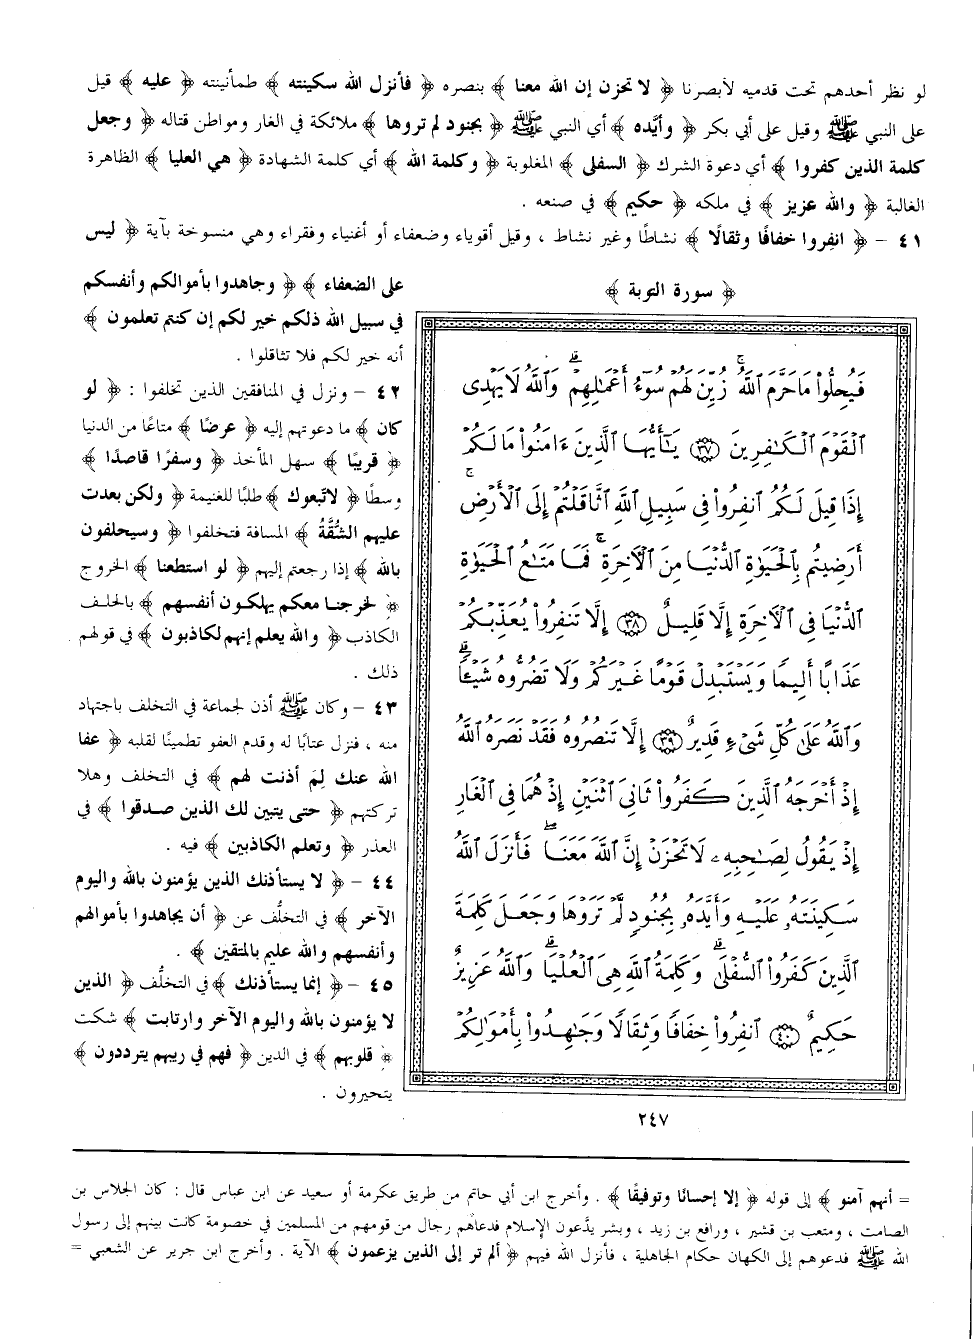 لو نظر أحدهم تحت قدميه لأبصرنا ﴿ لا تحزن إن الله معنا ﴾ بنصره ﴿ فأنزل الله سكينته ﴾ طمأنينته ﴿ عليه ﴾ قيل
على النبي ﷺ وقيل على أبي بكر ﴿ وأيَّده ﴾ أي النبي ﷺ ﴿ بجنود لم تروها ﴾ ملائكة في الغار ومواطن قتاله ﴿ وجعل
كلمة الذين كفروا ﴾ أي دعوة الشرك ﴿ السفلى ﴾ المغلوبة ﴿ وكلمة الله ﴾ أي كلمة الشهادة ﴿ هي العليا ﴾ الظاهرة
الغالبة ﴿ والله عزيز ﴾ في ملكه ﴿ حكيم ﴾ في صنعه .
٤١ - ﴿ انفِروا خفافًا وثقالًا ﴾ نشاطًا وغير نشاط ، وقيل أقوياء وضعفاء أو أغنياء وفقراء وهي منسوخة بآية ﴿ ليس
على الضعفاء ﴾ ﴿ وجاهدوا بأموالكم وأنفسكم
في سبيل الله ذلكم خير لكم إن كنتم تعلمون ﴾
أنه خير لكم فلا تثاقلوا .
٤٢ - ونزل في المنافقين الذين تخلفوا : ﴿ لو
كان ﴾ ما دعوتهم إليه ﴿ عرضًا ﴾ متاعًا من الدنيا
﴿ قريبًا ﴾ سهل المأخذ ﴿ وسفرًا قاصدًا ﴾
وسطًا ﴿ لاتبعوك ﴾ طلبًا للغنيمة ﴿ ولكن بعدت
عليهم الشُّقَّةُ ﴾ المسافة فتخلفوا ﴿ وسيحلفون
بالله ﴾ إذا رجعتم إليهم ﴿ لو استطعنا ﴾ الخروج
﴿ لخرجنا معكم يهلكون أنفسهم ﴾ بالحلف
الكاذب ﴿ والله يعلم إنهم لكاذبون ﴾ في قولهم
ذلك .
٤٣ - وكان ﷺ أذن لجماعة في التخلف باجتهاد
منه ، فنزل عتابًا له وقدم العفو تطمينًا لقلبه ﴿ عفا
الله عنك لِمَ أذنت لهم ﴾ في التخلف وهلا
تركتهم ﴿ حتى يتبين لك الذين صدقوا ﴾ في
العذر ﴿ وتعلم الكاذبين ﴾ فيه .
٤٤ - ﴿ لا يستأذنك الذين يؤمنون بالله واليوم
الآخر ﴾ في التخلُّف عن ﴿ أن يجاهدوا بأموالهم
وأنفسهم والله عليم بالمتقين ﴾ .
٤٥ - ﴿ إنما يستأذنك ﴾ في التخلُّف ﴿ الذين
لا يؤمنون بالله واليوم الآخر وارتابت ﴾ شكت
﴿ قلوبهم ﴾ في الدين ﴿ فهم في ريبهم يترددون ﴾
يتحيرون .
﴿ سورة التوبة ﴾
فَيُحِلُّواْ مَا حَرَّمَ ٱللَّهُۚ زُيِّنَ لَهُمۡ سُوٓءُ أَعۡمَٰلِهِمۡۗ وَٱللَّهُ لَا يَهۡدِي
ٱلۡقَوۡمَ ٱلۡكَٰفِرِينَ ٣٧ يَٰٓأَيُّهَا ٱلَّذِينَ ءَامَنُواْ مَا لَكُمۡ
إِذَا قِيلَ لَكُمُ ٱنفِرُواْ فِي سَبِيلِ ٱللَّهِ ٱثَّاقَلۡتُمۡ إِلَى ٱلۡأَرۡضِۚ
أَرَضِيتُم بِٱلۡحَيَوٰةِ ٱلدُّنۡيَا مِنَ ٱلۡأٓخِرَةِۚ فَمَا مَتَٰعُ ٱلۡحَيَوٰةِ
ٱلدُّنۡيَا فِي ٱلۡأٓخِرَةِ إِلَّا قَلِيلٌ ٣٨ إِلَّا تَنفِرُواْ يُعَذِّبۡكُمۡ
عَذَابًا أَلِيمٗا وَيَسۡتَبۡدِلۡ قَوۡمًا غَيۡرَكُمۡ وَلَا تَضُرُّوهُ شَيۡـٔٗاۗ
وَٱللَّهُ عَلَىٰ كُلِّ شَيۡءٖ قَدِيرٌ ٣٩ إِلَّا تَنصُرُوهُ فَقَدۡ نَصَرَهُ ٱللَّهُ
إِذۡ أَخۡرَجَهُ ٱلَّذِينَ كَفَرُواْ ثَانِيَ ٱثۡنَيۡنِ إِذۡ هُمَا فِي ٱلۡغَارِ
إِذۡ يَقُولُ لِصَٰحِبِهِۦ لَا تَحۡزَنۡ إِنَّ ٱللَّهَ مَعَنَاۖ فَأَنزَلَ ٱللَّهُ
سَكِينَتَهُۥ عَلَيۡهِ وَأَيَّدَهُۥ بِجُنُودٖ لَّمۡ تَرَوۡهَا وَجَعَلَ كَلِمَةَ
ٱلَّذِينَ كَفَرُواْ ٱلسُّفۡلَىٰۗ وَكَلِمَةُ ٱللَّهِ هِيَ ٱلۡعُلۡيَاۗ وَٱللَّهُ عَزِيزٌ
حَكِيمٌ ٤٠ ٱنفِرُواْ خِفَافٗا وَثِقَالٗا وَجَٰهِدُواْ بِأَمۡوَٰلِكُمۡ
٢٤٧
= أنهم آمنو ﴾ إلى قوله ﴿ إلا إحسانًا وتوفيقًا ﴾ . وأخرج ابن أبي حاتم من طريق عكرمة أو سعيد عن ابن عباس قال : كان الجلاس بن
الصامت ، ومتعب بن قشير ، ورافع بن زيد ، وبشر يدَّعون الإسلام فدعاهم رجال من قومهم من المسلمين في خصومة كانت بينهم إلى رسول
الله ﷺ فدعوهم إلى الكهان حكام الجاهلية ، فأنزل الله فيهم ﴿ ألم تر إلى الذين يزعمون ﴾ الآية . وأخرج ابن جرير عن الشعبي =